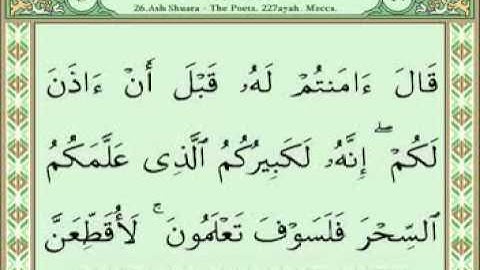 26.Ash Shuara - The Poets. 227ayah. Mecca.
قَالَ ءَامَنتُمْ لَهُۥ قَبْلَ أَنْ ءَاذَنَ
لَكُمْ ۖ إِنَّهُۥ لَكَبِيرُكُمُ ٱلَّذِى عَلَّمَكُمُ
ٱلسِّحْرَ فَلَسَوْفَ تَعْلَمُونَ ۚ لَأُقَطِّعَنَّ